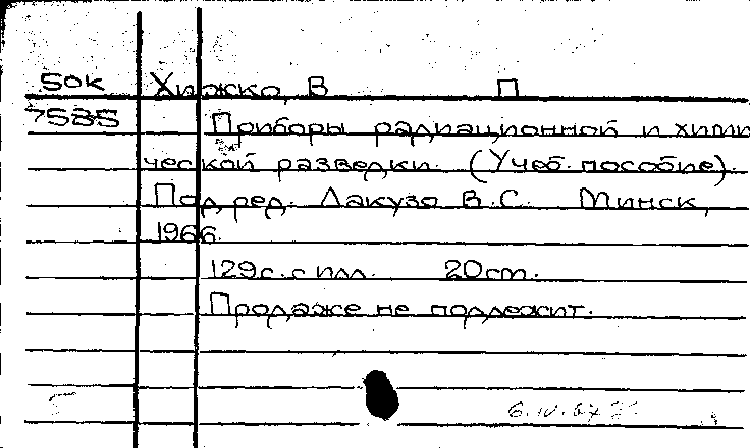 50к Хижко, В П
7585 Приборы радиационной и хими
ческой разведки. (Учеб. пособие).
Под ред. Лакузо В.С. Минск,
1966.
129с. с илл. 20cm.
Продаже не подлежит.